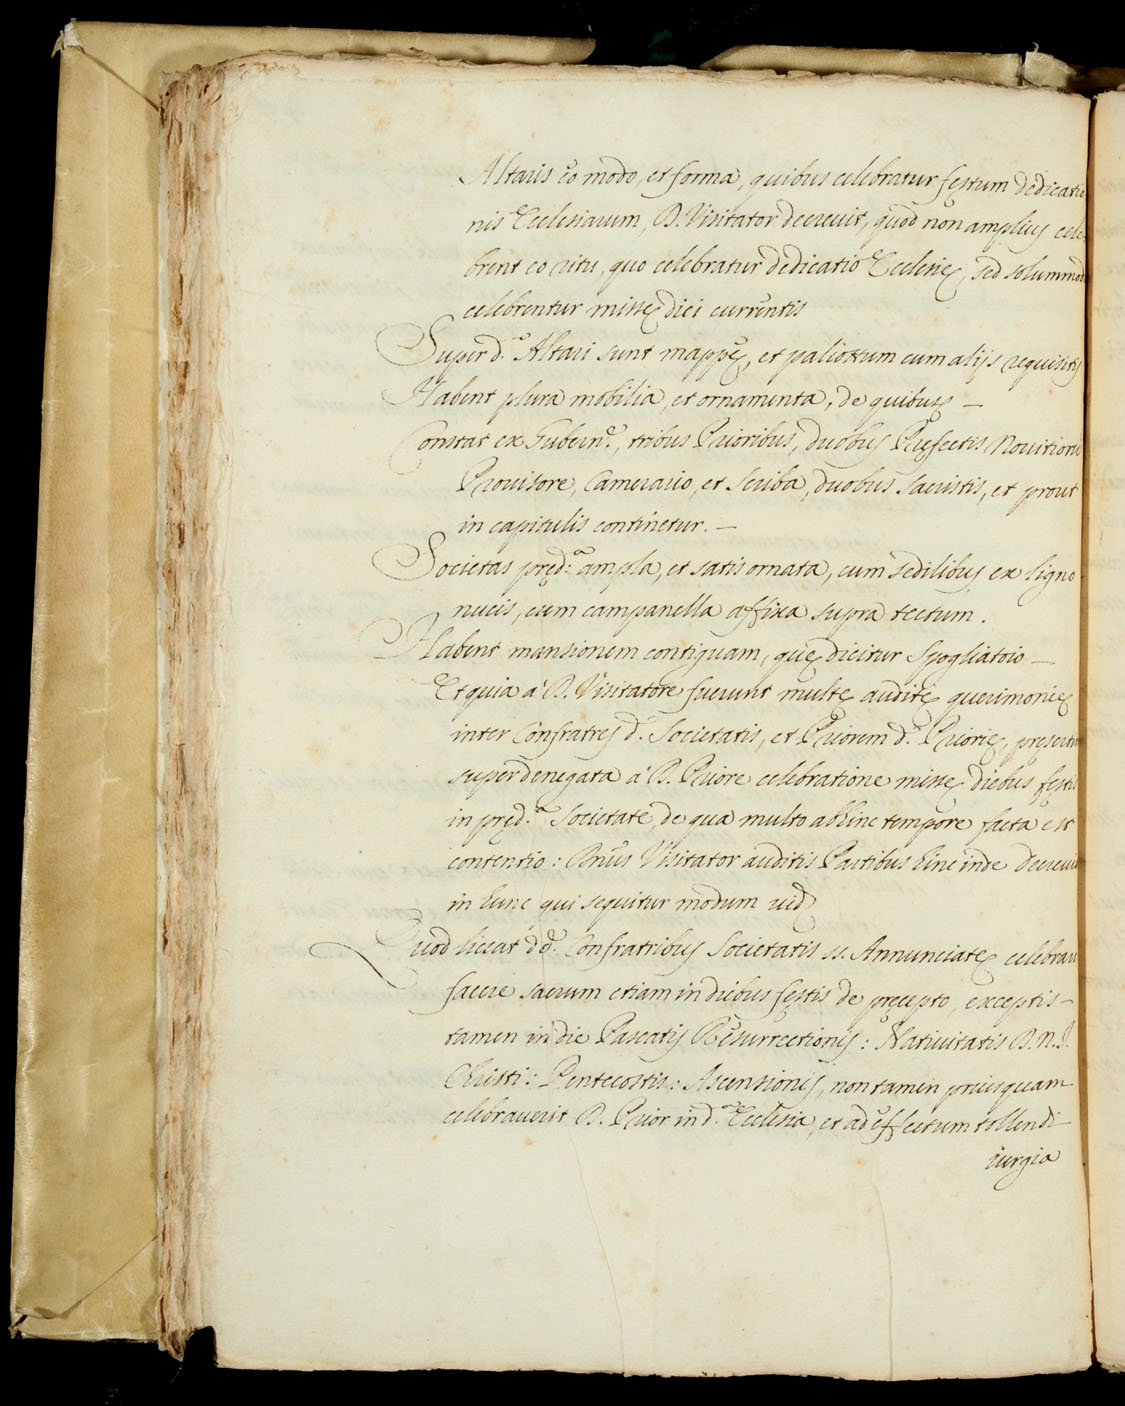 Altaris eo modo, et forma, quibus celebratur festum dedicatio
nis Ecclesiarum, D. Visitator decrevit, quod non amplius cele
brent eo ritu, quo celebratur dedicatio Ecclesię, sed solummod
celebrentur missę diei currentis
Super d.º Altari sunt mappę, et paliottum cum alijs requisitis
Habent plura mobilia, et ornamenta, de quibus —
Constat ex Gubern.e, tribus Prioribus, duobus Pręfectis Novitioru
Provisore, Camerario, et Scriba, duobus Sacristis, et prout
in capitulis continetur. —
Societas pręd:a ampla, et satis ornata, cum sedilibus ex ligno
nucis, cum campanella affixa supra tectum.
Habent mansionem contiguam, quę dicitur Spogliatoio —
Et quia à D. Visitatore fuerunt multę auditę querimonię
inter Confratres d.ę Societatis, et Priorem d.ę Priorię, pręsertim
super denegata à D. Priore celebratione missę diebus festis
in pręd.a Societate, de qua multo abhinc tempore facta est
contentio: Dnus Visitator auditis Partibus hinc inde decrevit
in hunc qui sequitur modum vid
Quod liceat dd. Confratribus Societatis ss. Annunciatę celebrari
facere sacrum etiam in diebus festis de pręcepto, exceptis —
tamen in die Pascatis Resurrectionis: Nativitatis D. N. J.
Christi: Pentecostis: Ascensionis, non tamen priusquam
celebraverit D. Prior in d.a Ecclesia, et ad effectum tollendi
iurgia